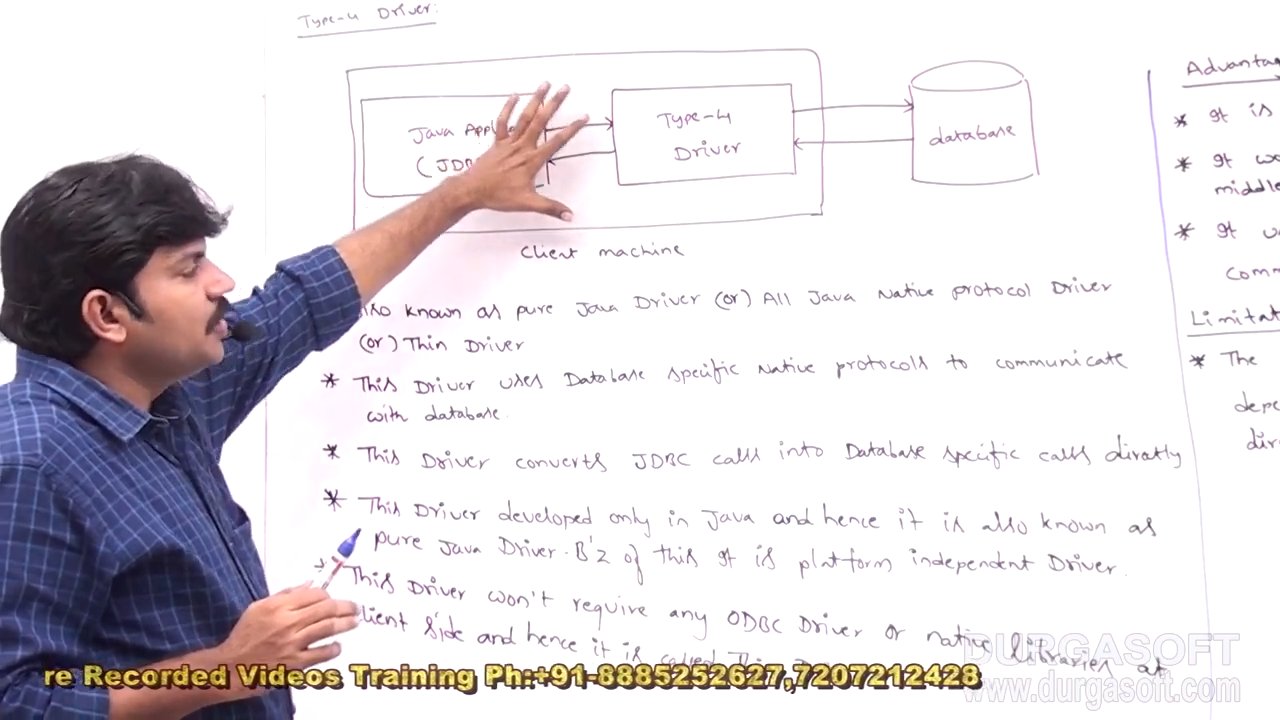 Type-4 Driver:
Java Appli
(JDB
Type-4
Driver
database
Client machine
Also known as pure Java Driver (or) All Java Native protocol Driver
(or) Thin Driver
* This Driver uses Database specific Native protocols to communicate
with database.
* This Driver converts JDBC calls into Database specific calls directly
* This Driver developed only in Java and hence it is also known as
pure Java Driver. B'z of this It is platform independent Driver.
* This Driver won't require any ODBC Driver or native libraries at
client side and hence it is called
Advantag
* It is
* It wo
middle
* It u
comm
Limitat
* The
depe
dir
DURGASOFT
www.durgasoft.com
re Recorded Videos Training Ph:+91-8885252627,7207212428